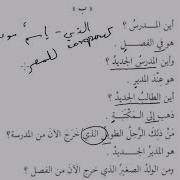 « ب »
أين المدرسُ ؟
هو في الفصلِ .
وأين المدرسُ الجديدُ ؟
هو عندَ المديرِ .
أين الطالبُ الجديدُ ؟
ذهب إلى المكتبةِ .
مَنْ ذلك الرجلُ الطويلُ الذي خَرَجَ الآنَ من المدرسة ؟
هو المديرُ الجديدُ .
ومن الولدُ الصغيرُ الذي خَرَجَ الآنَ من الفصل ؟
الذي - إسم
compound